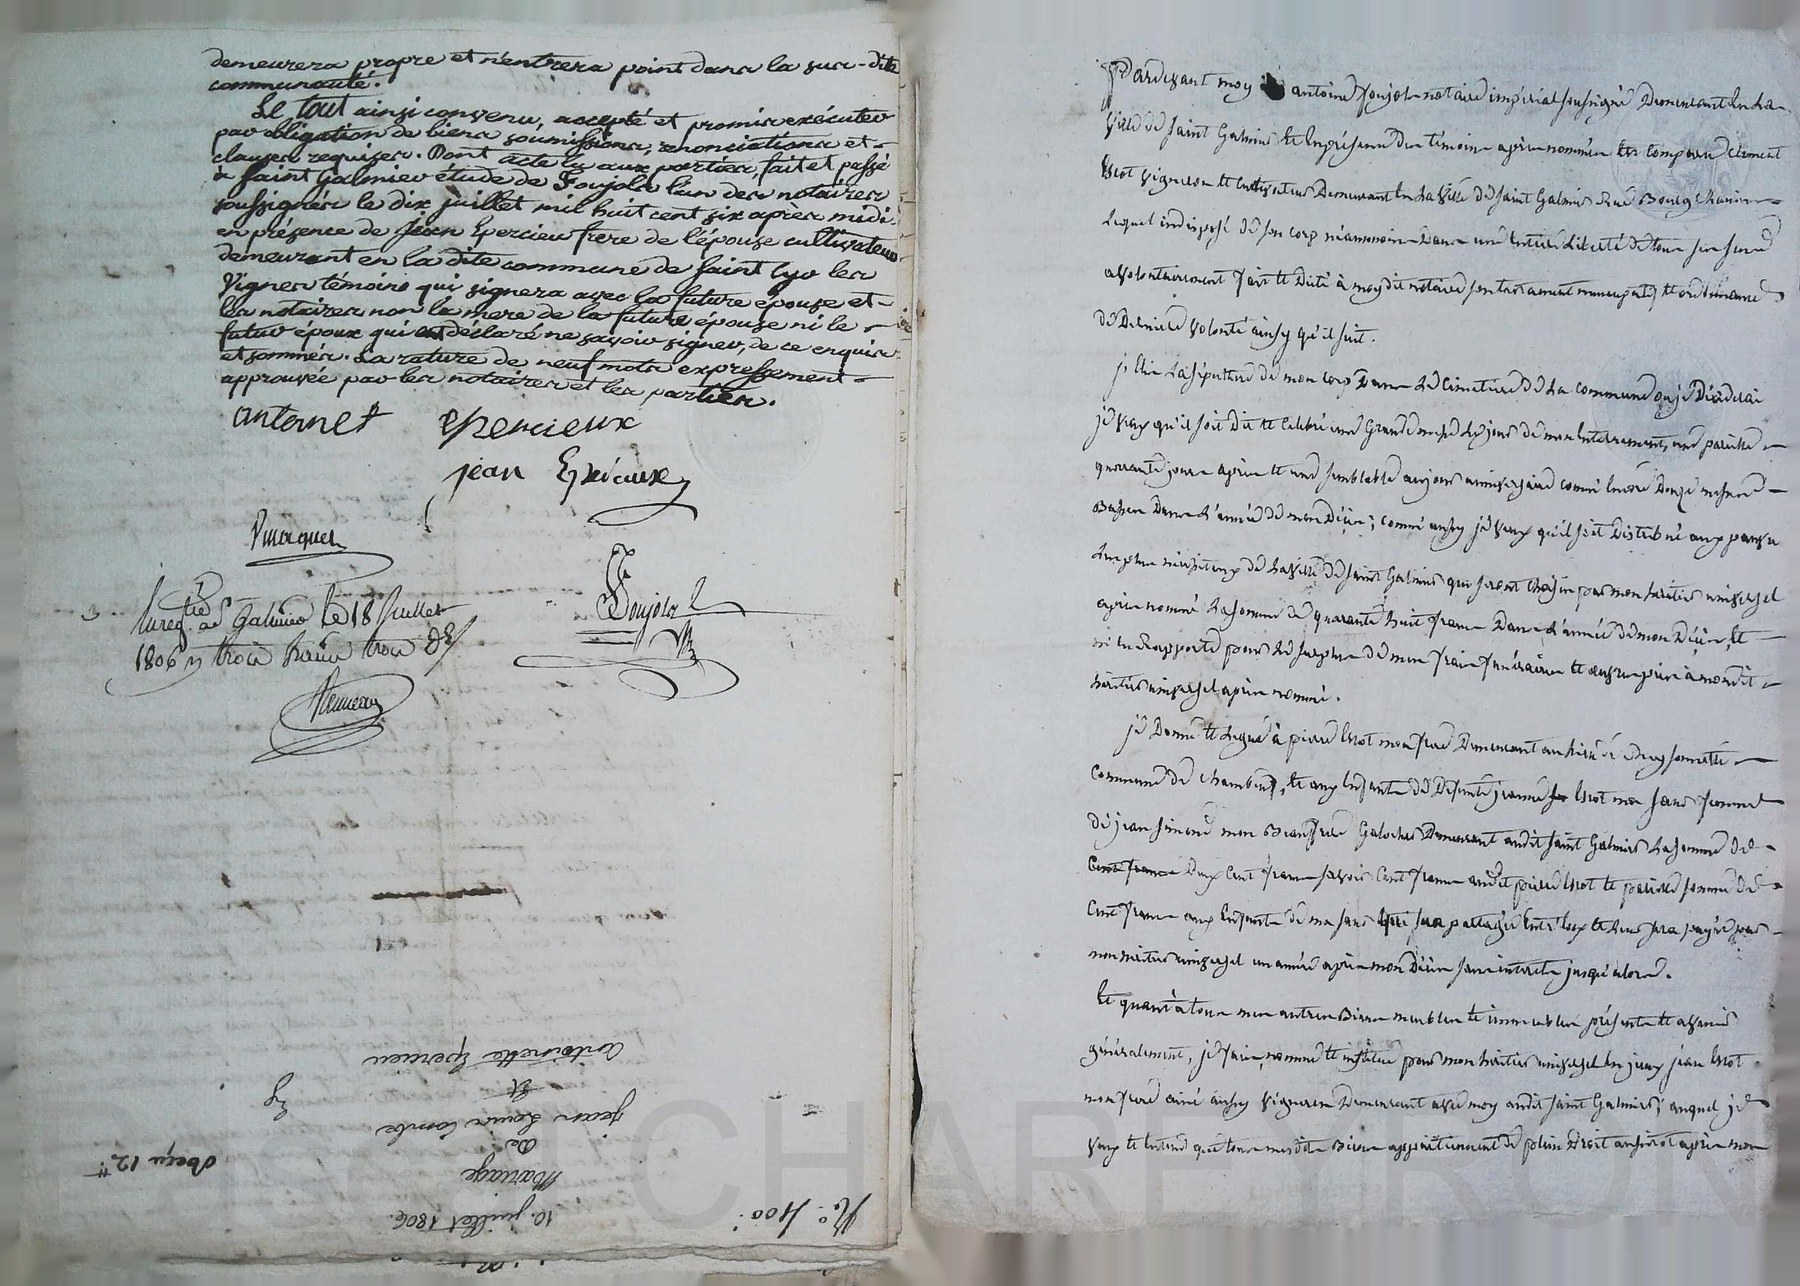 demeurera propre et n'entrera point dans la sus-dite
communauté.
Le tout ainsi convenu, accepté et promis exécuter
par obligation de biens soûmissions, renonciations et
clauses requises. Dont acte lu aux parties, fait et passé
à Saint Galmier étude de Foujols l'un des notaires
soussignés le dix juillet mil huit cent six après midi
en présence de Jean Epercieu frere de l'épouse cultivateur
demeurant en la dite commune de Saint Cyr les
Vignes témoins qui signera avec la future épouse et
les notaires non la mere de la future épouse ni le
futur époux qui ont déclaré ne savoir signer, de ce enquis
et sommés. La rature de neuf mots expressement
approuvée par les notaires et les parties.
antoinet epercieux
jean Epercieux
Foujols
Enreg.té à St Galmier le 18 Juillet
1806 trois francs trois
Pardevant moy antoine foujols notaire impérial soussigné Demeurant En La
Ville de Saint Galmier Et En présence Des témoins après nommés Est comparu Clément
vigneron Et Cultivateur Demeurant En La Ville de Saint Galmier Rue Bourg
Lequel indisposé de son corp néanmoins Dans une Entière Liberté de tous ses sens
a volontairement fait Et Dicté à moy dit notaire son testament nuncupatif Et ordonnance
de Derniere volonté ainsy qu'il suit.
j'Elis La sépulture de mon corp Dans Le Cimetiere de La commune ou je Décéderai
je veux qu'il soit Dit Et Célébré une Grande messe Le jour de mon Enterrement, une pareille
quarante jours après Et une semblable au jour anniversaire comme Encore Douze messes
Basses Dans L'année de mon Décès; comme aussy je veux qu'il soit Distribué aux pauvres
Les plus nécessiteux de La Ville de Saint Galmier qui seront choisis par mon héritier universel
après nommé La somme de quarante huit francs Dans L'année de mon Décès, Et
m'en Rapporte pour Le surplus de mes frais funéraires Et œuvres pies à mondit
héritier universel après nommé.
je Donne Et Legue à pierre mon frere Demeurant au
Commune de Chambœuf, Et aux Enfants de Defunte jeanne ma sœur femme
de jean simond mon Beaufrere Galocher Demeurant audit Saint Galmier La somme de
Cent francs Deux Cent francs savoir Cent francs audit pierre Et pareille somme de
Cent francs aux Enfants de ma sœur partagés Entr'Eux Et Leur sera payée par
mon héritier universel un année après mon Décès sans interets jusqu'alors.
Et quant à tous mes autres Biens meubles Et immeubles présents Et avenir
généralement, je fais, nomme Et institue pour mon héritier universel jean
mon frere ainé aussy vigneron Demeurant avec moy audit Saint Galmier, auquel je
veux Et Entend que tous mesdits Biens appartiennent de plein Droit aussitot après mon
N.o 400.
10. juillet 1806.
Mariage
de
Jean Louis Combe
Et
Antoinette Epercieu
Reçu 12
CHARLYRON